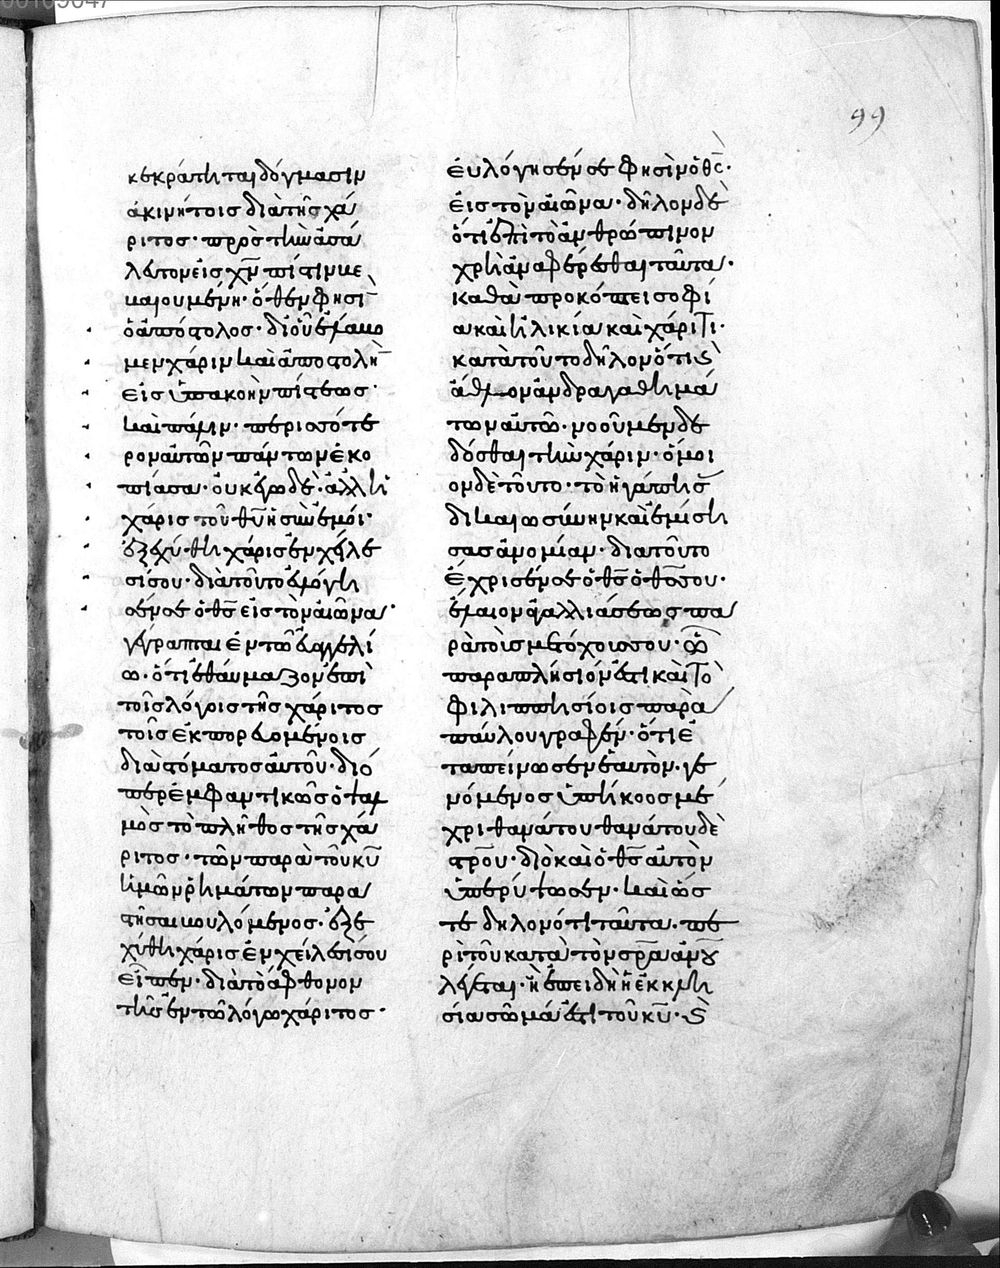 99
κεκράτηται δόγμασιν
ἀκινήτοις διὰ τῆς χά
ριτος· πρὸς τὴν ἀσά
λευτον εἰς χν πίστιν βε
βαιουμένη· ὅθεν φησὶ
ὁ ἀπόστολος· δι οὗ ἐλάβο
μεν χάριν καὶ ἀποστολὴν
εἰς ὑπακοὴν πίστεως·
καὶ πάλιν· περισσότε
ρον αὐτῶν πάντων ἐκο
πίασα· οὐκ ἐγὼ δὲ· ἀλλ ἡ
χάρις τοῦ θυ ἡ σὺν ἐμοί·
ἐξεχύθη χάρις ἐν χείλε
σί σου· διὰ τοῦτο εὐλόγη
σέν σε ὁ θς εἰς τὸν αἰῶνα·
γέγραπται ἐν τῶ εὐαγγελί
ω· ὅτι ἐθαύμαζον ἐπὶ
τοῖς λόγοις τῆς χάριτος
τοῖς ἐκπορευομένοις
διὰ στόματος αὐτοῦ· διό
περ ἐμφαντικῶς ὁ ψαλ
μὸς τὸ πλῆθος τῆς χά
ριτος· τῶν παρὰ τοῦ κυ
ἡμῶν ῥημάτων παρα
στῆσαι βουλόμενος· ἐξε
χύθη χάρις ἐν χείλεσί σου
εἶπεν· διὰ τὸ ἄφθονον
τῆς ἐν τῶ λόγω χάριτος·
ἐυλόγησέν σε φησὶν ὁ θς·
εἰς τὸν αἰῶνα· δῆλον δὲ
ὅτι ἐπὶ τὸ ἀνθρώπινον
χρὴ ἀναφέρεσθαι ταῦτα·
καθὰ προκόπτει σοφί
α καὶ ἡλικία καὶ χάριτι·
κατὰ τοῦτο δηλονότι καὶ
ἆθλον ἀνδραγαθημά
των αὐτῶ· νοοῦμεν δε
δόσθαι τὴν χάριν· ὅμοι
ον δὲ τοῦτο· τὸ ἠγάπησας
δικαιοσύνην καὶ ἐμίση
σας ἀνομίαν· διατοῦτο
ἔχρισέν σε ὁ θς ὁ θς σου·
ἔλαιον ἀγαλλιάσεως πα
ρὰ τοὺς μετόχους σου· ᾧ
παραπλήσιόν ἐστι καὶ τὸ
φιλιππησίοις παρὰ
παύλου γραφέν· ὅτι ἐ
ταπείνωσεν ἑαυτὸν· γε
νόμενος ὑπήκοος μέ
χρι θανάτου θανάτου δὲ
στρου· διὸ καὶ ὁ θς αὐτὸν
ὑπερύψωσεν· καὶ ὥσ
τε δηλονότι ταῦτα· πε
ρὶ τοῦ κατὰ τὸν σρα ἀνου
λέγεται· ἢ ἐπειδὴ ἡ ἐκκλη
σία σῶμά ἐστι τοῦ κυ· καὶ